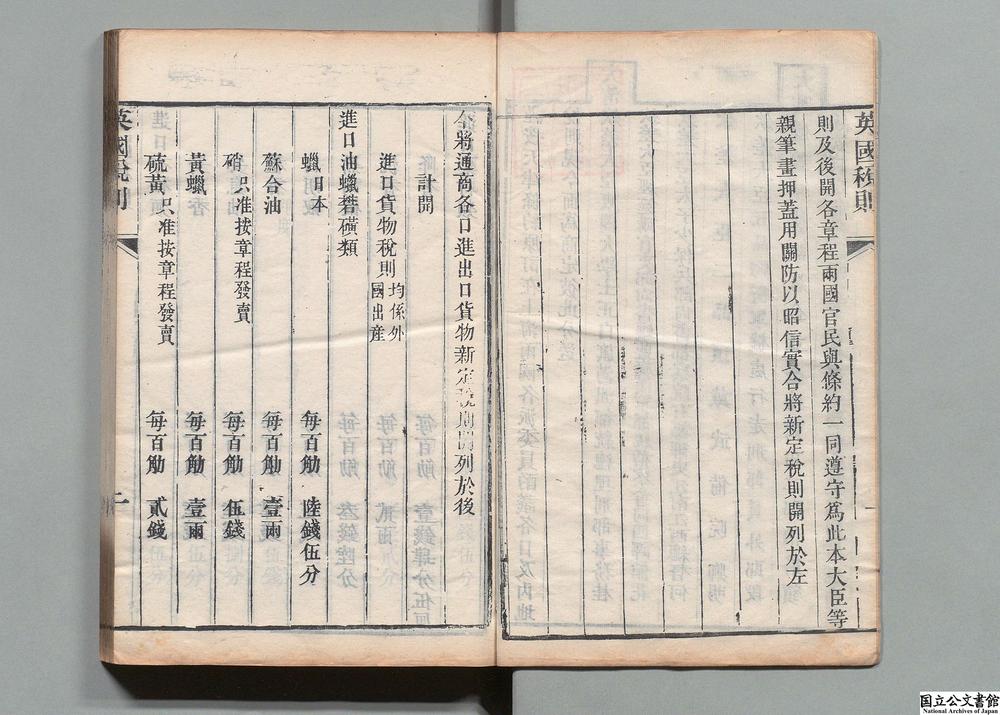 英國稅則
則及後開各章程兩國官民與條約一同遵守爲此本大臣等
親筆畫押蓋用關防以昭信實合將新定稅則開列於左
今將通商各口進出口貨物新定稅則開列於後
計開
進口貨物稅則 均係外國出產
進口油蠟礬磺類
蠟 日本 每百觔 陸錢伍分
蘇合油 每百觔 壹兩
硝 只准按章程發賣 每百觔 伍錢
黃蠟 每百觔 壹兩
硫黃 只准按章程發賣 每百觔 貳錢
英國稅則
国立公文書館
National Archives of Japan